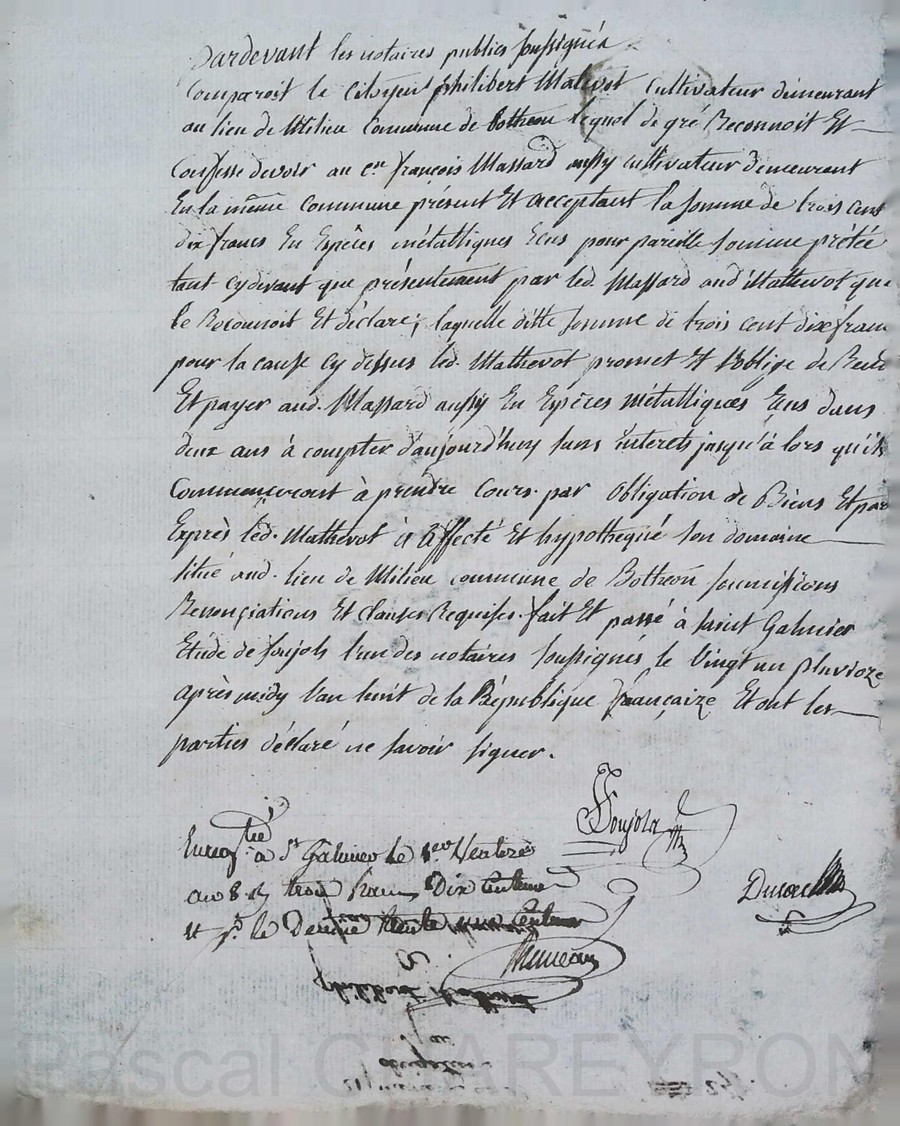 Pardevant les notaires publics soussignés
Comparoit le Citoyen philibert Mathevot Cultivateur demeurant
au lieu de Milieu Commune de Botheon lequel de gré Reconnoit Et
Confesse devoir au cen françois Massard aussy cultivateur demeurant
En la même Commune présent Et acceptant la somme de trois cent
dix francs En Espèces métalliques Ecus pour pareille somme prétée
tant cydevant que présentement par led. Massard aud Mathevot que
le Reconnoit Et déclare; laquelle ditte somme de trois cent dix fran
pour la cause cy dessus led. Mathevot promet Et s'oblige de Rend
Et payer aud. Massard aussy En Espèces métalliques Ecus dans
deux ans à compter d'aujourd'huy sans interets jusqu'à lors qu'ils
Commenceront à prendre Cours par Obligation de Biens Et par
Exprès led. Mathevot à affecté Et hypothequé son domaine
situé aud. lieu de Milieu commune de Botheon soumissions
Renonciations Et Clauses Requises. fait Et passé à saint Galmier
Etude de Soujols l'un des notaires soussignés le Vingt un pluvioze
après midy l'an huit de la République françaize Et ont les
parties déclaré ne savoir signer.
Soujols
Enregtré à St Galmier le Ventoze
au 8 trois francs Dix Centimes
Et le Decime trente
philibert
obligation
Pascal CHAREYRON